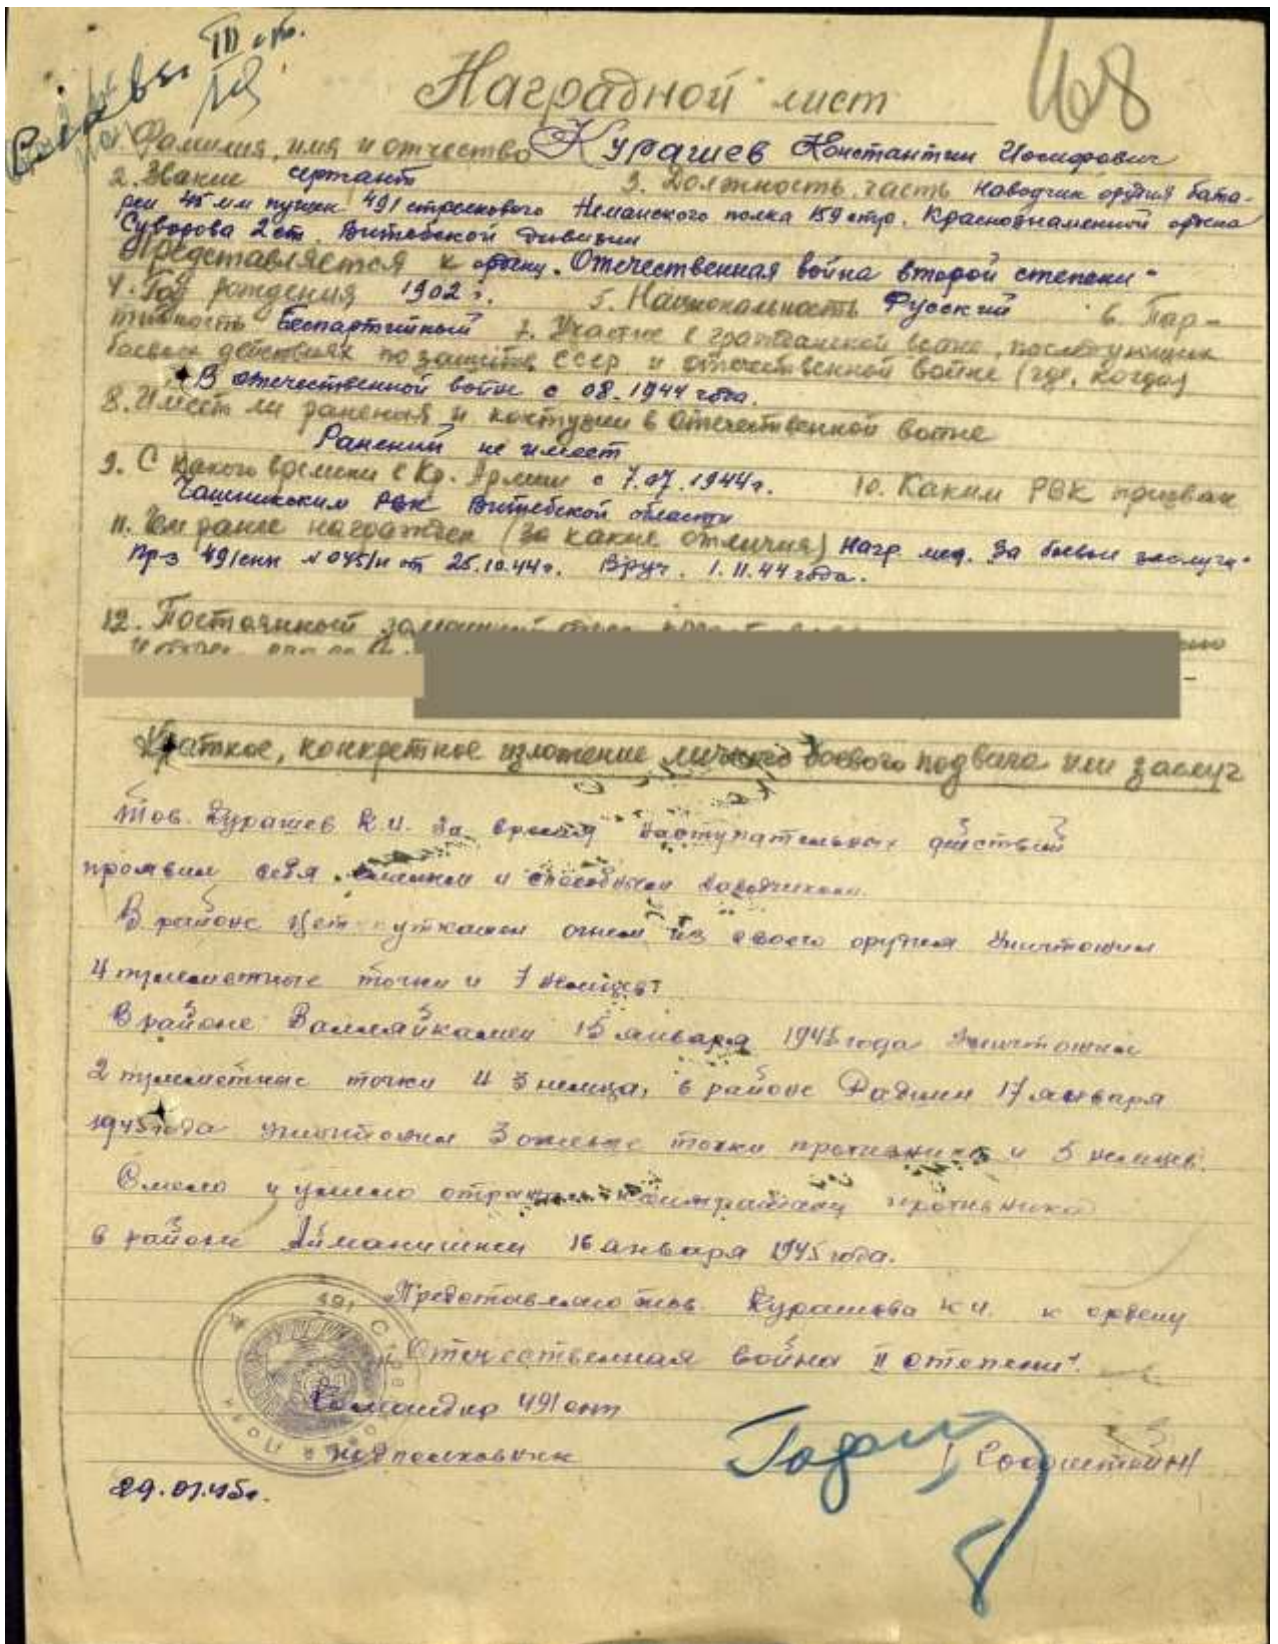 III
68
Наградной лист
1. Фамилия, имя и отчество Курашев Константин Иосифович
2. Звание сержант 3. Должность, часть Наводчик орудия бата-
реи 45 мм пушек 491 стрелкового Неманского полка 159 стр. Краснознаменной ордена
Суворова 2 ст. Витебской дивизии
Представляется к ордену "Отечественная война второй степени"
4. Год рождения 1902 г. 5. Национальность Русский 6. Пар-
тийность Беспартийный 7. Участие в гражданской войне, последующих
боевых действиях по защите СССР и отечественной войне (где, когда)
В отечественной войне с 08.1944 года.
8. Имеет ли ранения и контузии в отечественной войне
Ранений не имеет
9. С какого времени в Кр. Армии с 7.07.1944 г. 10. Каким РВК призван
Чашникским РВК Витебской области
11. Чем ранее награжден (за какие отличия) Нагр. мед. "За боевые заслуги"
Пр-з 491 сп № 045/н от 25.10.44 г. Вруч. 1.11.44 года.
12. Постоянный домашний
Краткое, конкретное изложение личного боевого подвига или заслуг
Тов. Курашев К.И. за время наступательных действий
проявил себя смелым и способным наводчиком.
В районе огнем из своего орудия уничтожил
4 пулеметные точки и 7 немцев.
В районе Валляйкамен 15 января 1945 года уничтожил
2 пулеметные точки и 3 немца, в районе Радшен 17 января
1945 года уничтожил 3 огневые точки противника и 5 немцев.
Смело и умело отражал контратаку противника
в районе 16 января 1945 года.
Представляю тов. Курашова К.И. к ордену
"Отечественная война II степени".
Командир 491 сп
подполковник
29.01.45 г.